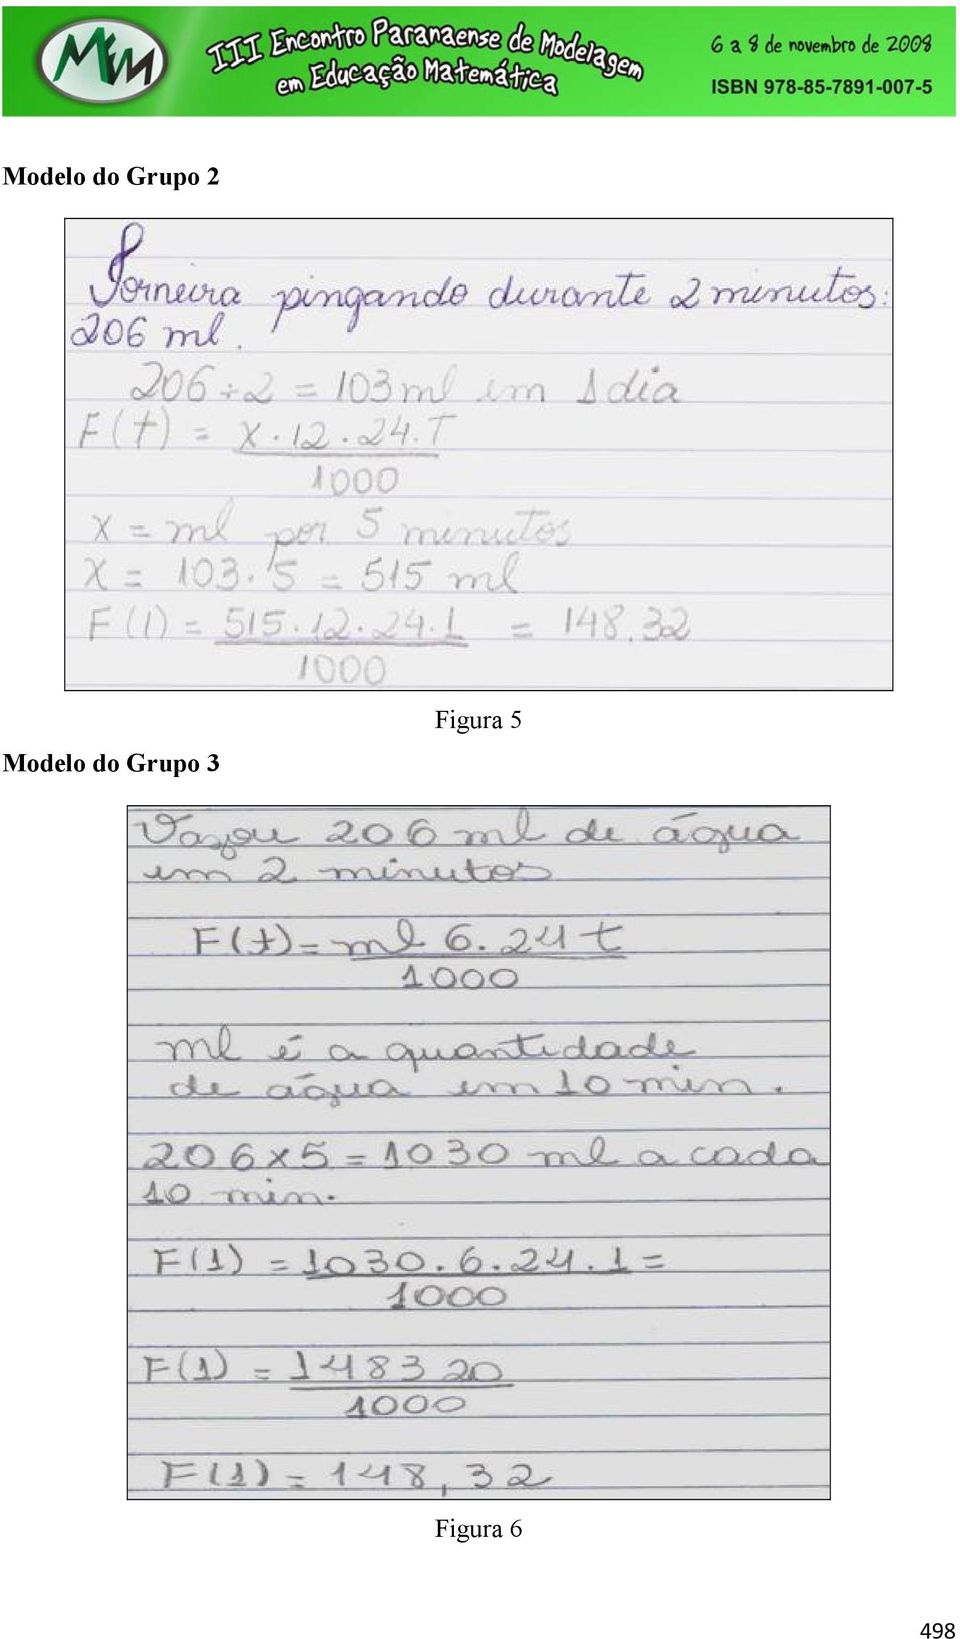 MEM
III Encontro Paranaense de Modelagem
em Educação Matemática
6 a 8 de novembro de 2008
ISBN 978-85-7891-007-5
Modelo do Grupo 2
Torneira pingando durante 2 minutos:
206 ml.
206 ÷ 2 = 103 ml em 1 dia
F(t) = X . 12 . 24 . T
1000
X = ml por 5 minutos
X = 103 . 5 = 515 ml
F(1) = 515 . 12 . 24 . 1 = 148,32
1000
Figura 5
Modelo do Grupo 3
Vazou 206 ml de água
em 2 minutos
F(t) = ml 6 . 24 t
1000
ml é a quantidade
de água em 10 min.
206 x 5 = 1030 ml a cada
10 min.
F(1) = 1030 . 6 . 24 . 1 =
1000
F(1) = 148320
1000
F(1) = 148,32
Figura 6
498